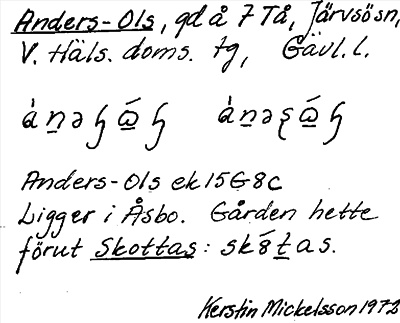 Anders-Ols, gd å 7 Tå, Järvsösn,
V. Häls. doms. tg, Gävl. l.
Anders-Ols ek 15G8c
Ligger i Åsbo. Gården hette
förut Skottas:
Kerstin Mickelsson 1972